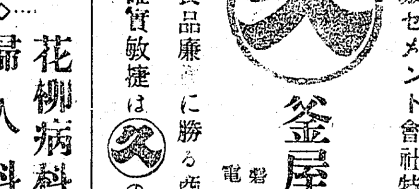 セメント會社特
釜屋
電
良品廉
に勝る商
確實敏捷は
の
花柳病科
婦人科